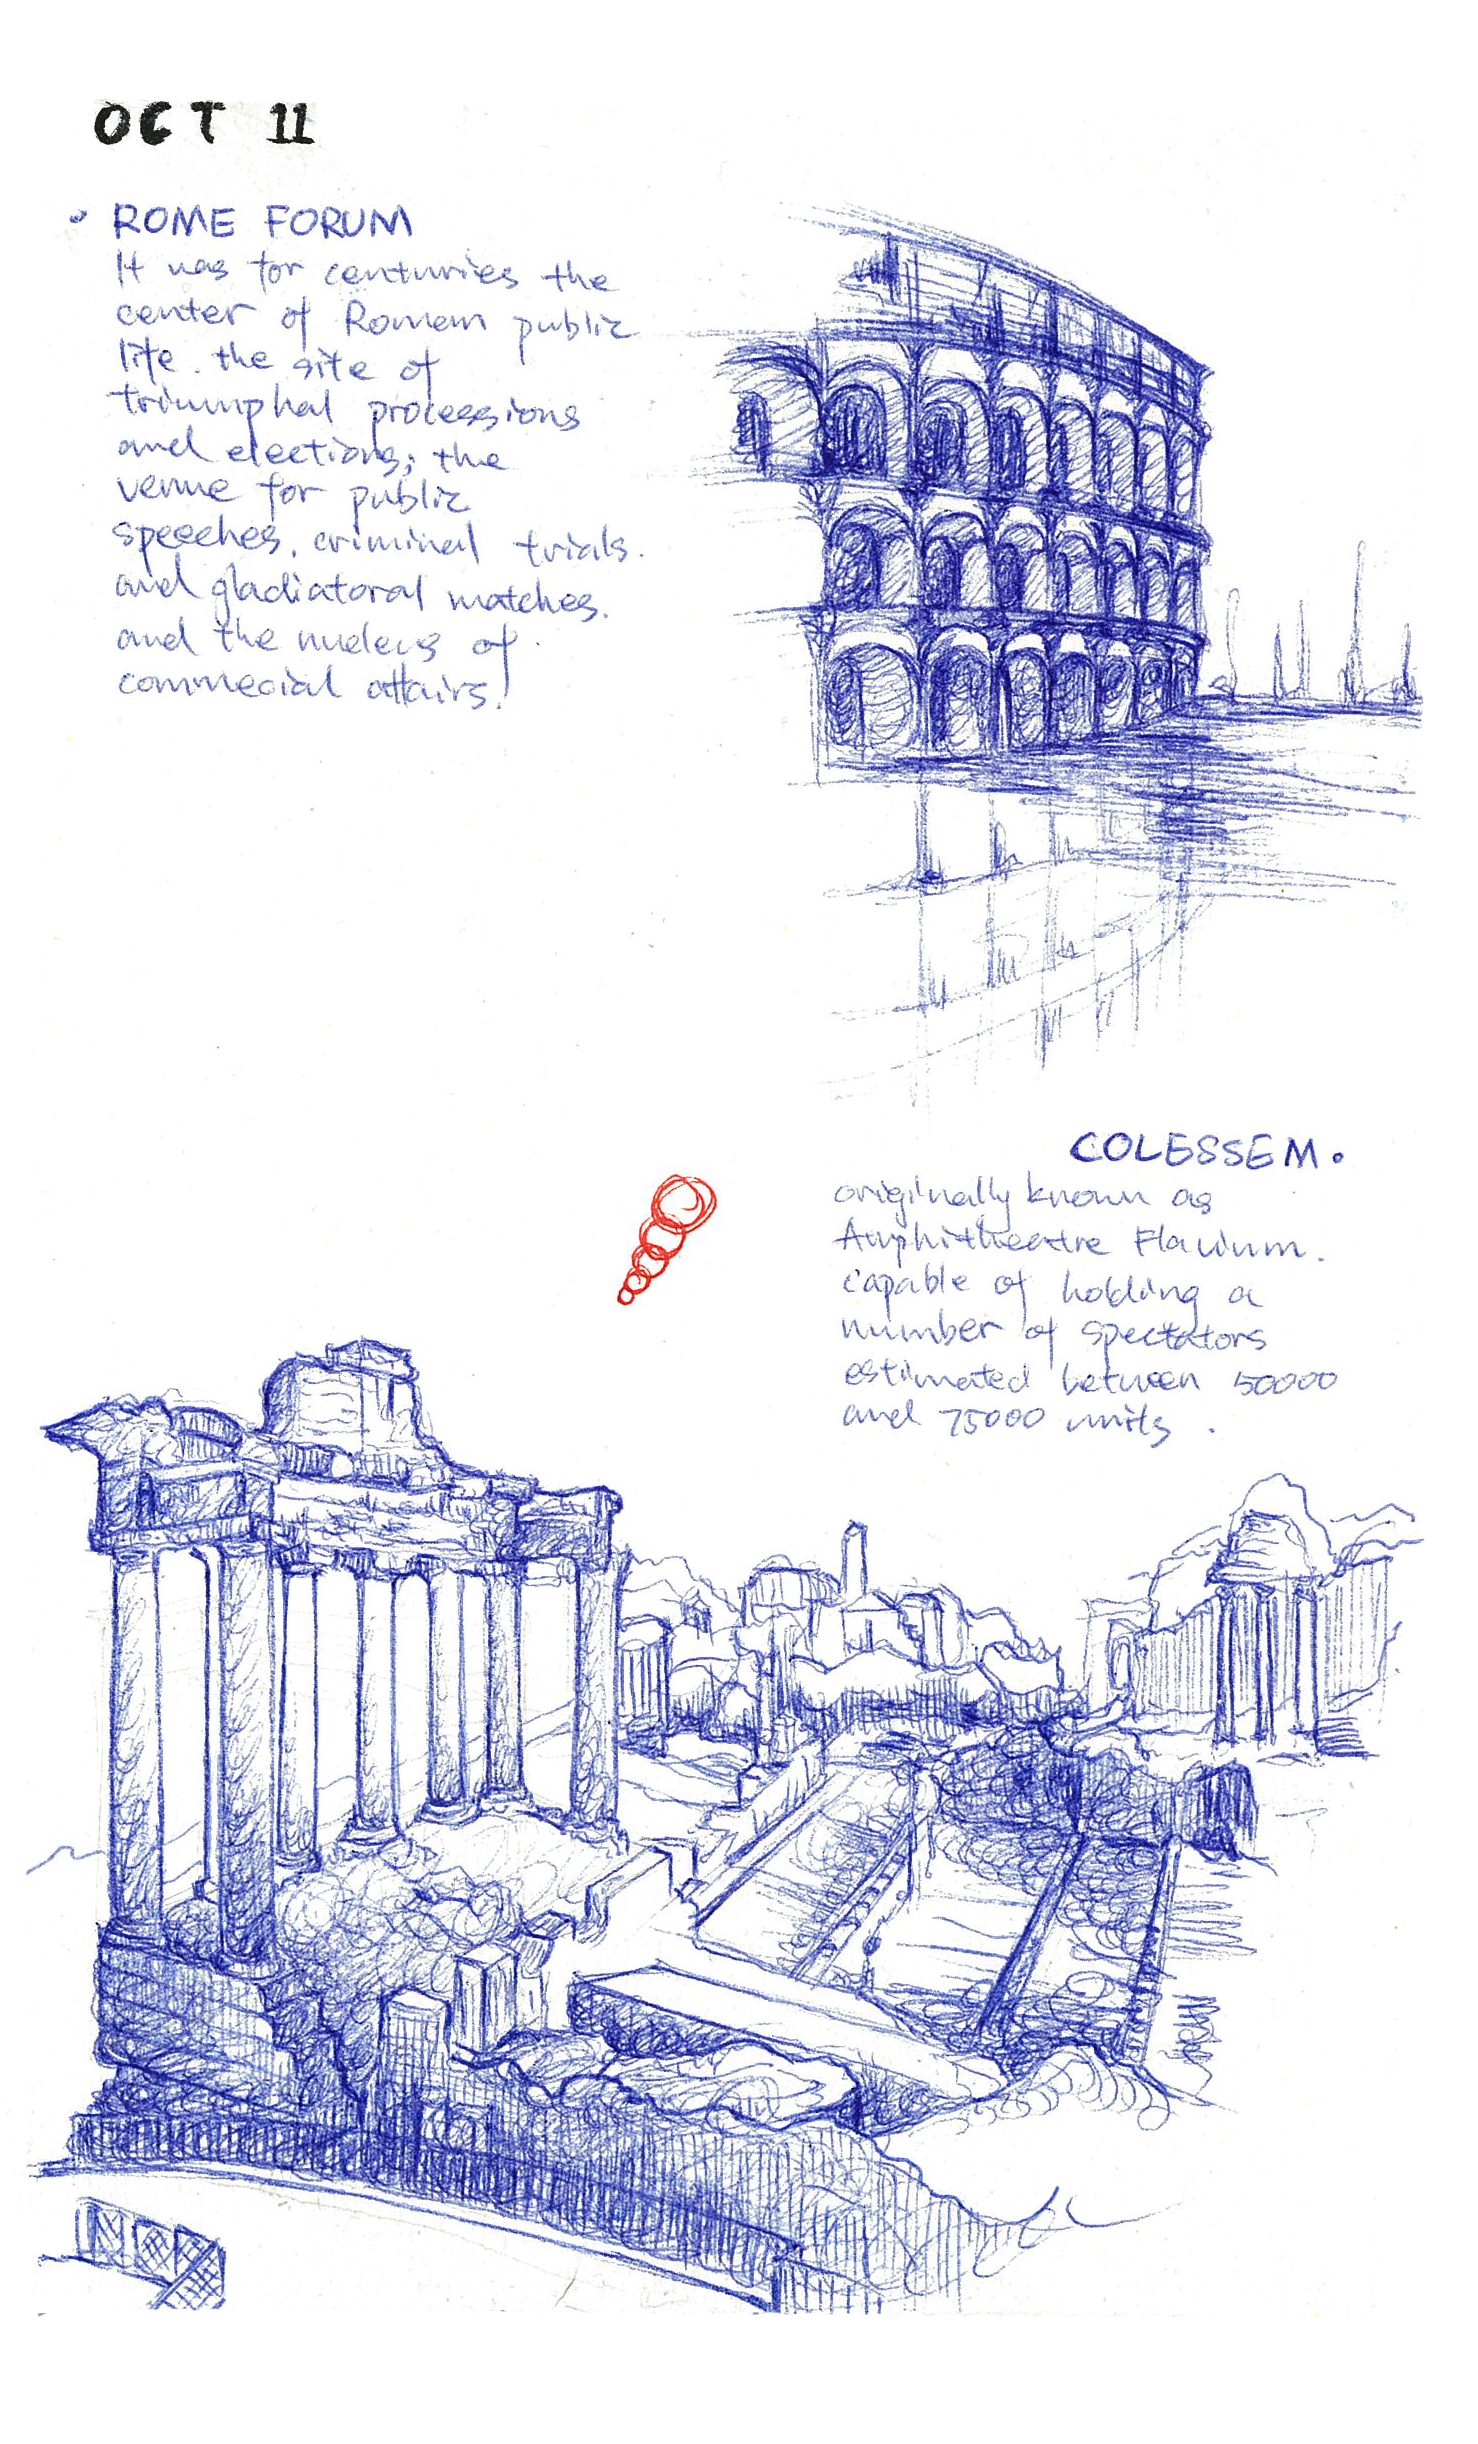 OCT 11
ROME FORUM
It was for centuries the
center of Roman public
life. the site of
triumphal processions
and elections; the
venue for public
speeches. criminal trials.
and gladiatoral matches.
and the nucleus of
commecial affairs.
COLESSEM.
originally known as
Amphitheatre Flavium.
capable of holding a
number of spectators
estimated between 50000
and 75000 units.